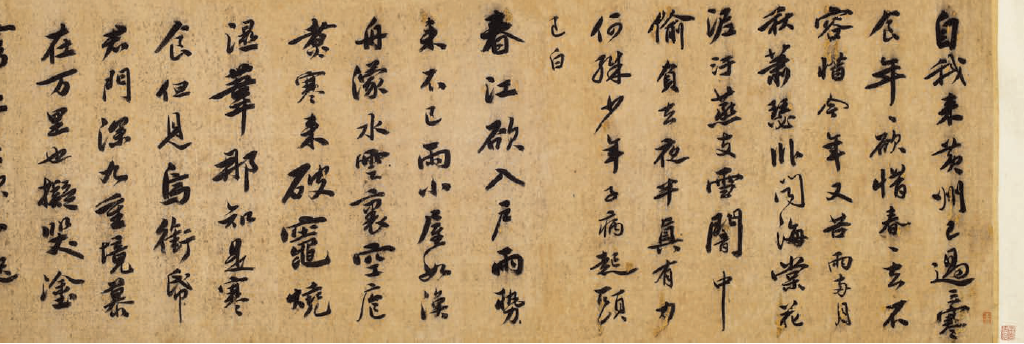 自我来黄州已過三寒
食年〻欲惜春〻去不
容惜今年又苦雨兩月
秋蕭瑟卧聞海棠花
泥汙燕支雪闇中
偷負去夜半真有力
何殊少年子病起頭
已白
春江欲入戶雨勢
来不已雨小屋如漁
舟濛〻水雲裏空庖
煮寒菜破竈燒
濕葦那知是寒
食但見烏銜帋
君門深九重墳墓
在万里也擬哭塗